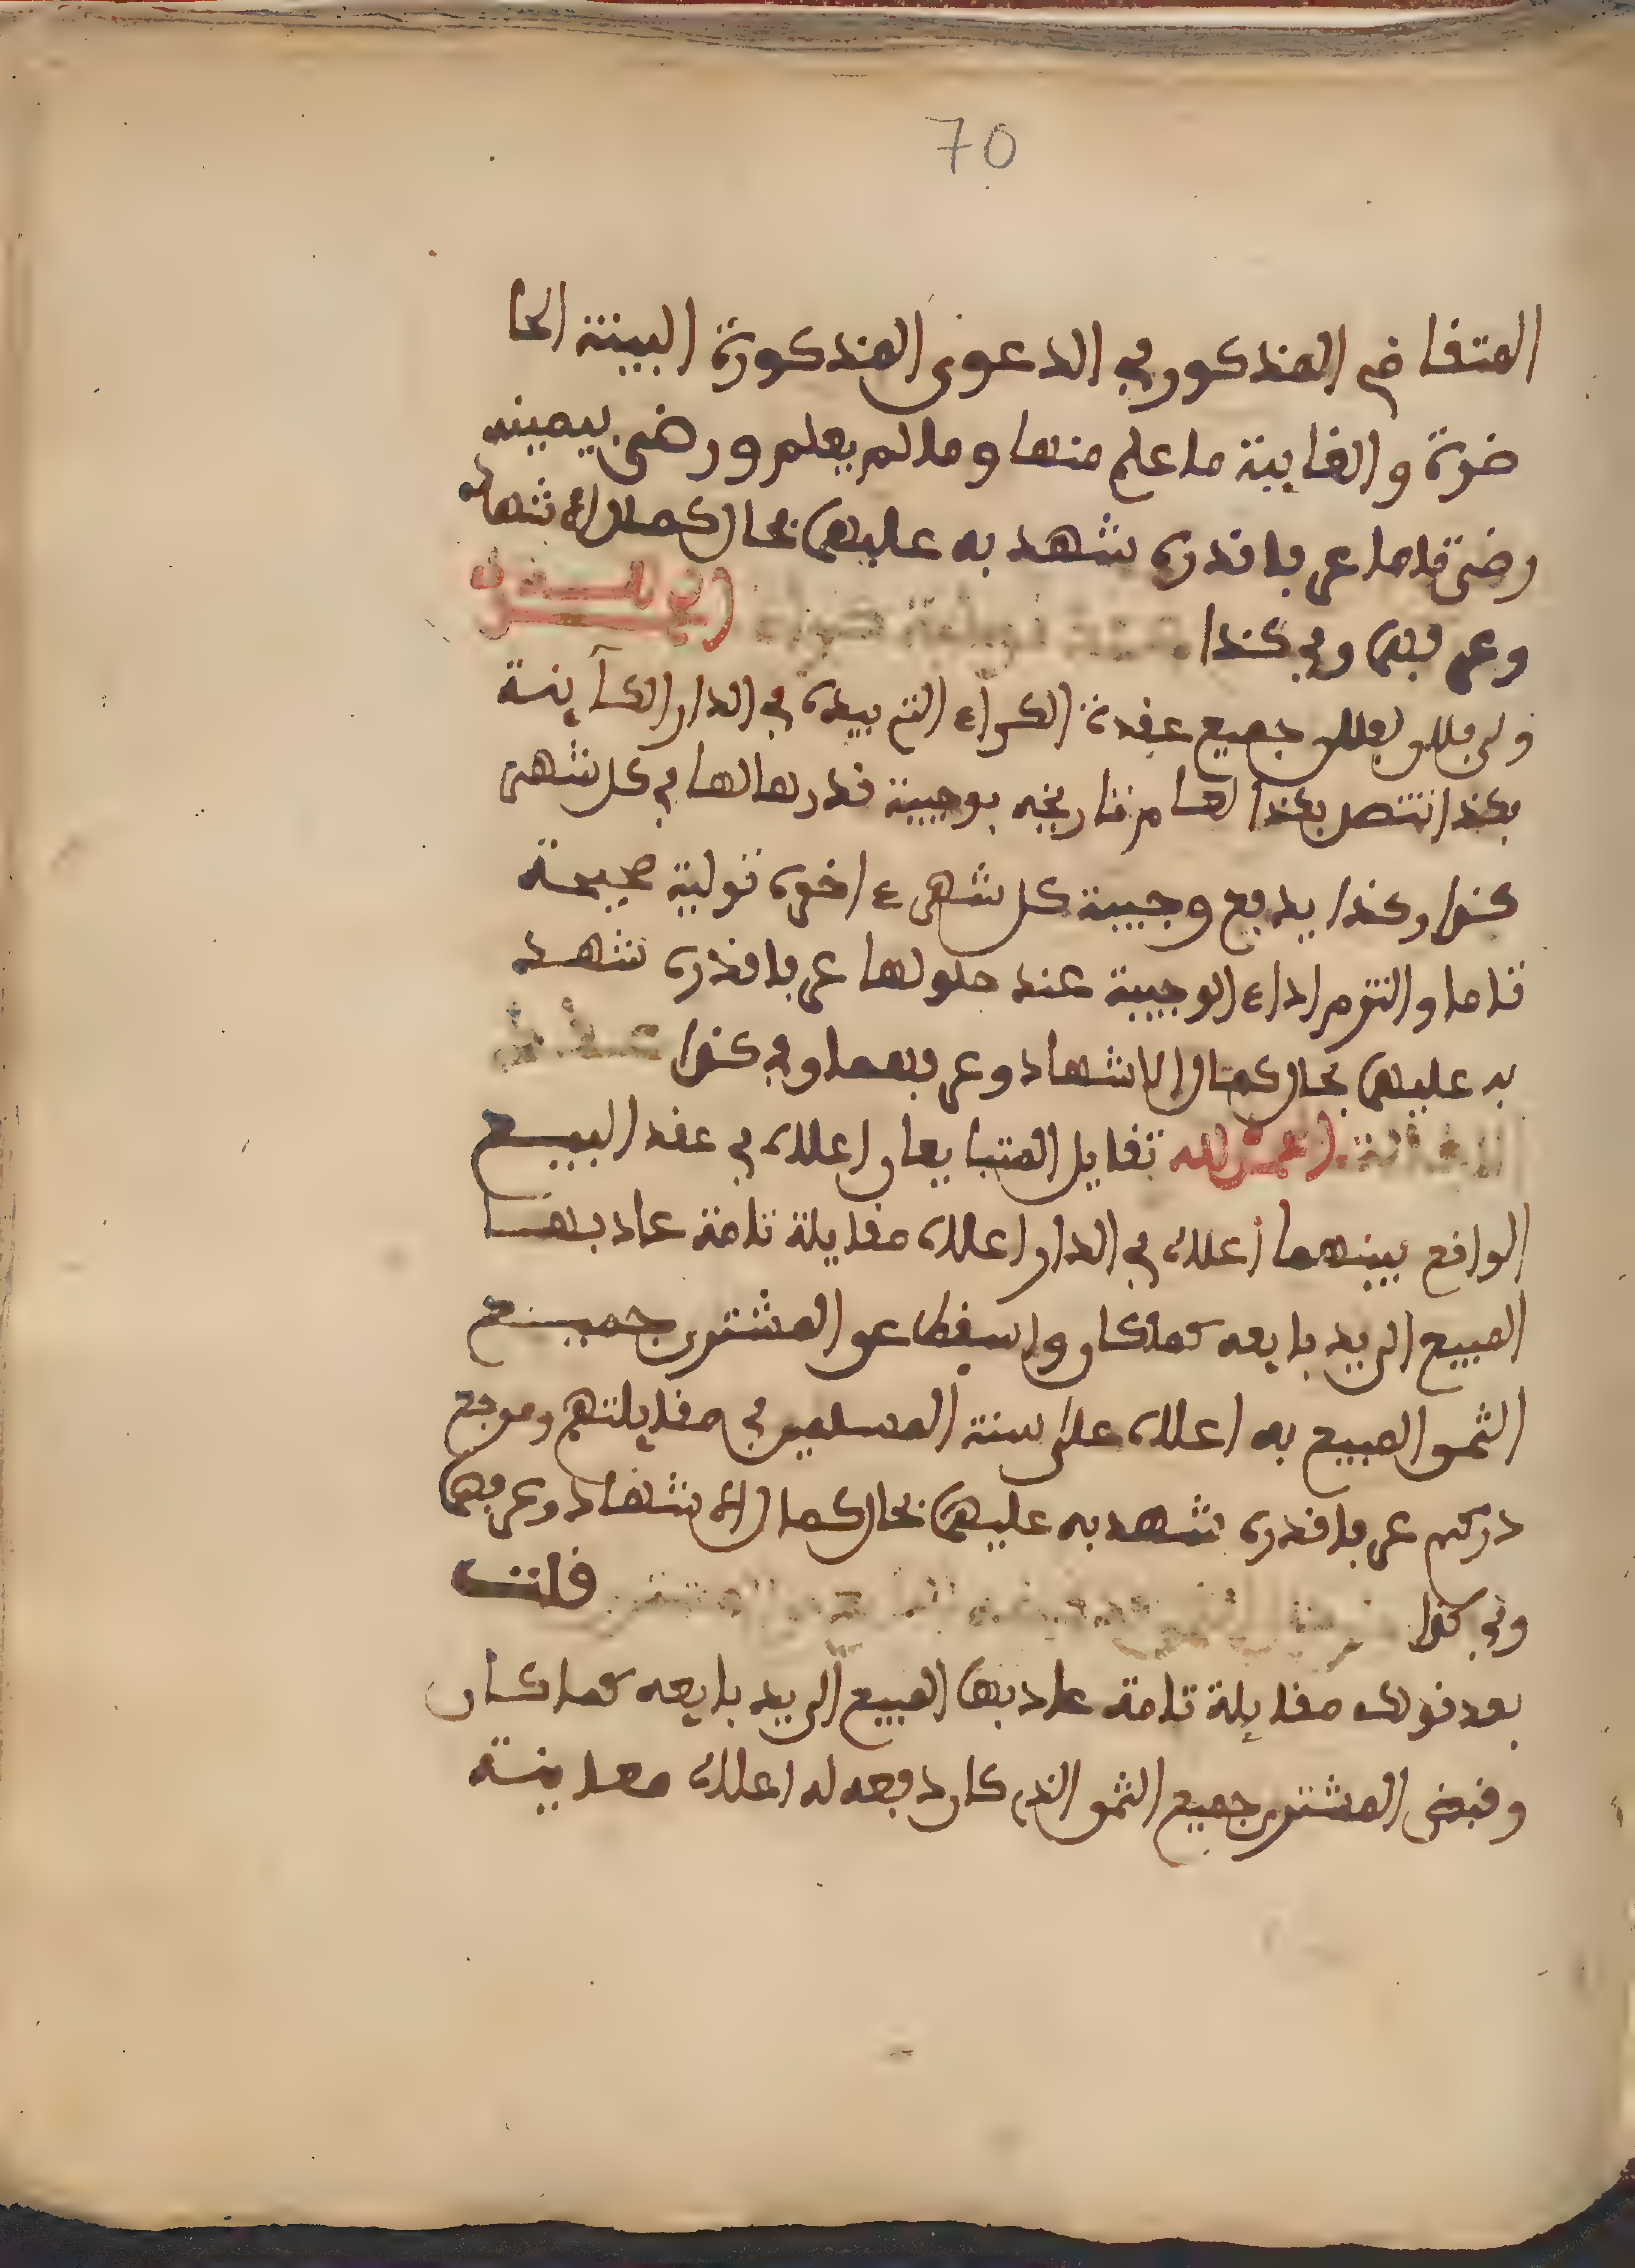 70
المتقاضي المذكور في الدعوى المذكورة البينة الحا
ضرة والغايبة ما علم منها وما لم يعلم ورضي بيمينه
رضى تاما عرفا قدره شهد به عليهما بحال كمال الاشهاد
وعرفهما وفي كذا
ولى فلان لفلان جميع عقدة الكراء التي بيده في الدار الكاينة
بكذا تتصل بكذا لعام من تاريخه بوجيبة قدرها لها في كل شهر
كذا وكذا يدفع وجيبة كل شهر ءاخره تولية صحيحة
تاما والتزم اداء الوجيبة عند حلولها عرفا قدره شهد
به عليهما بحال كمال الاشهاد وعرفهما وفي كذا عقد في
الاقالة الحمد لله تقايل المتبايعان اعلاه في عقد البيع
الواقع بينهما أعلاه في الدار اعلاه مقايلة تامة عاد بها
المبيع الى يد بايعه كما كان واسقطا عن المشتري جميع
الثمن المبيع به اعلاه على سنة المسلمين في مقايلتهم ومرجع
دركهم عرفا قدره شهد به عليهما بحال كمال الاشهاد وعرفهما
وفي كذا قلت
بعد قولك مقايلة تامة عاد بها المبيع الى يد بايعه كما كان
وقبض المشتري جميع الثمن الذي كان دفعه له اعلاه معاينة